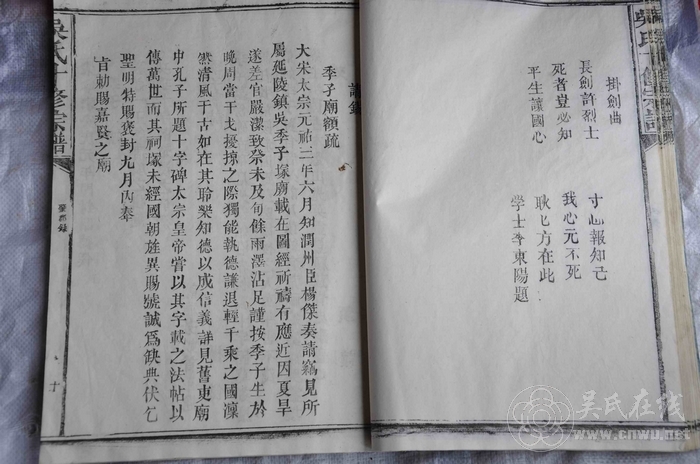 掛劍曲
長劍許烈士
寸心報知己
死者豈必知
我心元不死
平生讓國心
耿耿方在此
學士李東陽題
吳氏十修宗譜
季子廟額疏
大宋太宗元祐三年六月知潤州臣楊傑奏請竊見所
屬延陵鎮吳季子塚廟載在圖經祈禱有應近因夏旱
遂差官嚴潔致祭未及旬餘雨澤沾足謹按季子生於
晚周當干戈擾掠之際獨能執德謙退輕千乘之國凜
然清風于古如在其聆樂知德以成信義詳見舊史廟
中孔子所題十字碑太宗皇帝嘗以其字載之法帖以
傳萬世而其祠塚未經國朝旌異賜號誠爲缺典伏乞
聖明特賜褒封九月內奉
旨勅賜嘉賢之廟
吳氏十修宗譜
十
吳氏在线
www.cnwu.net